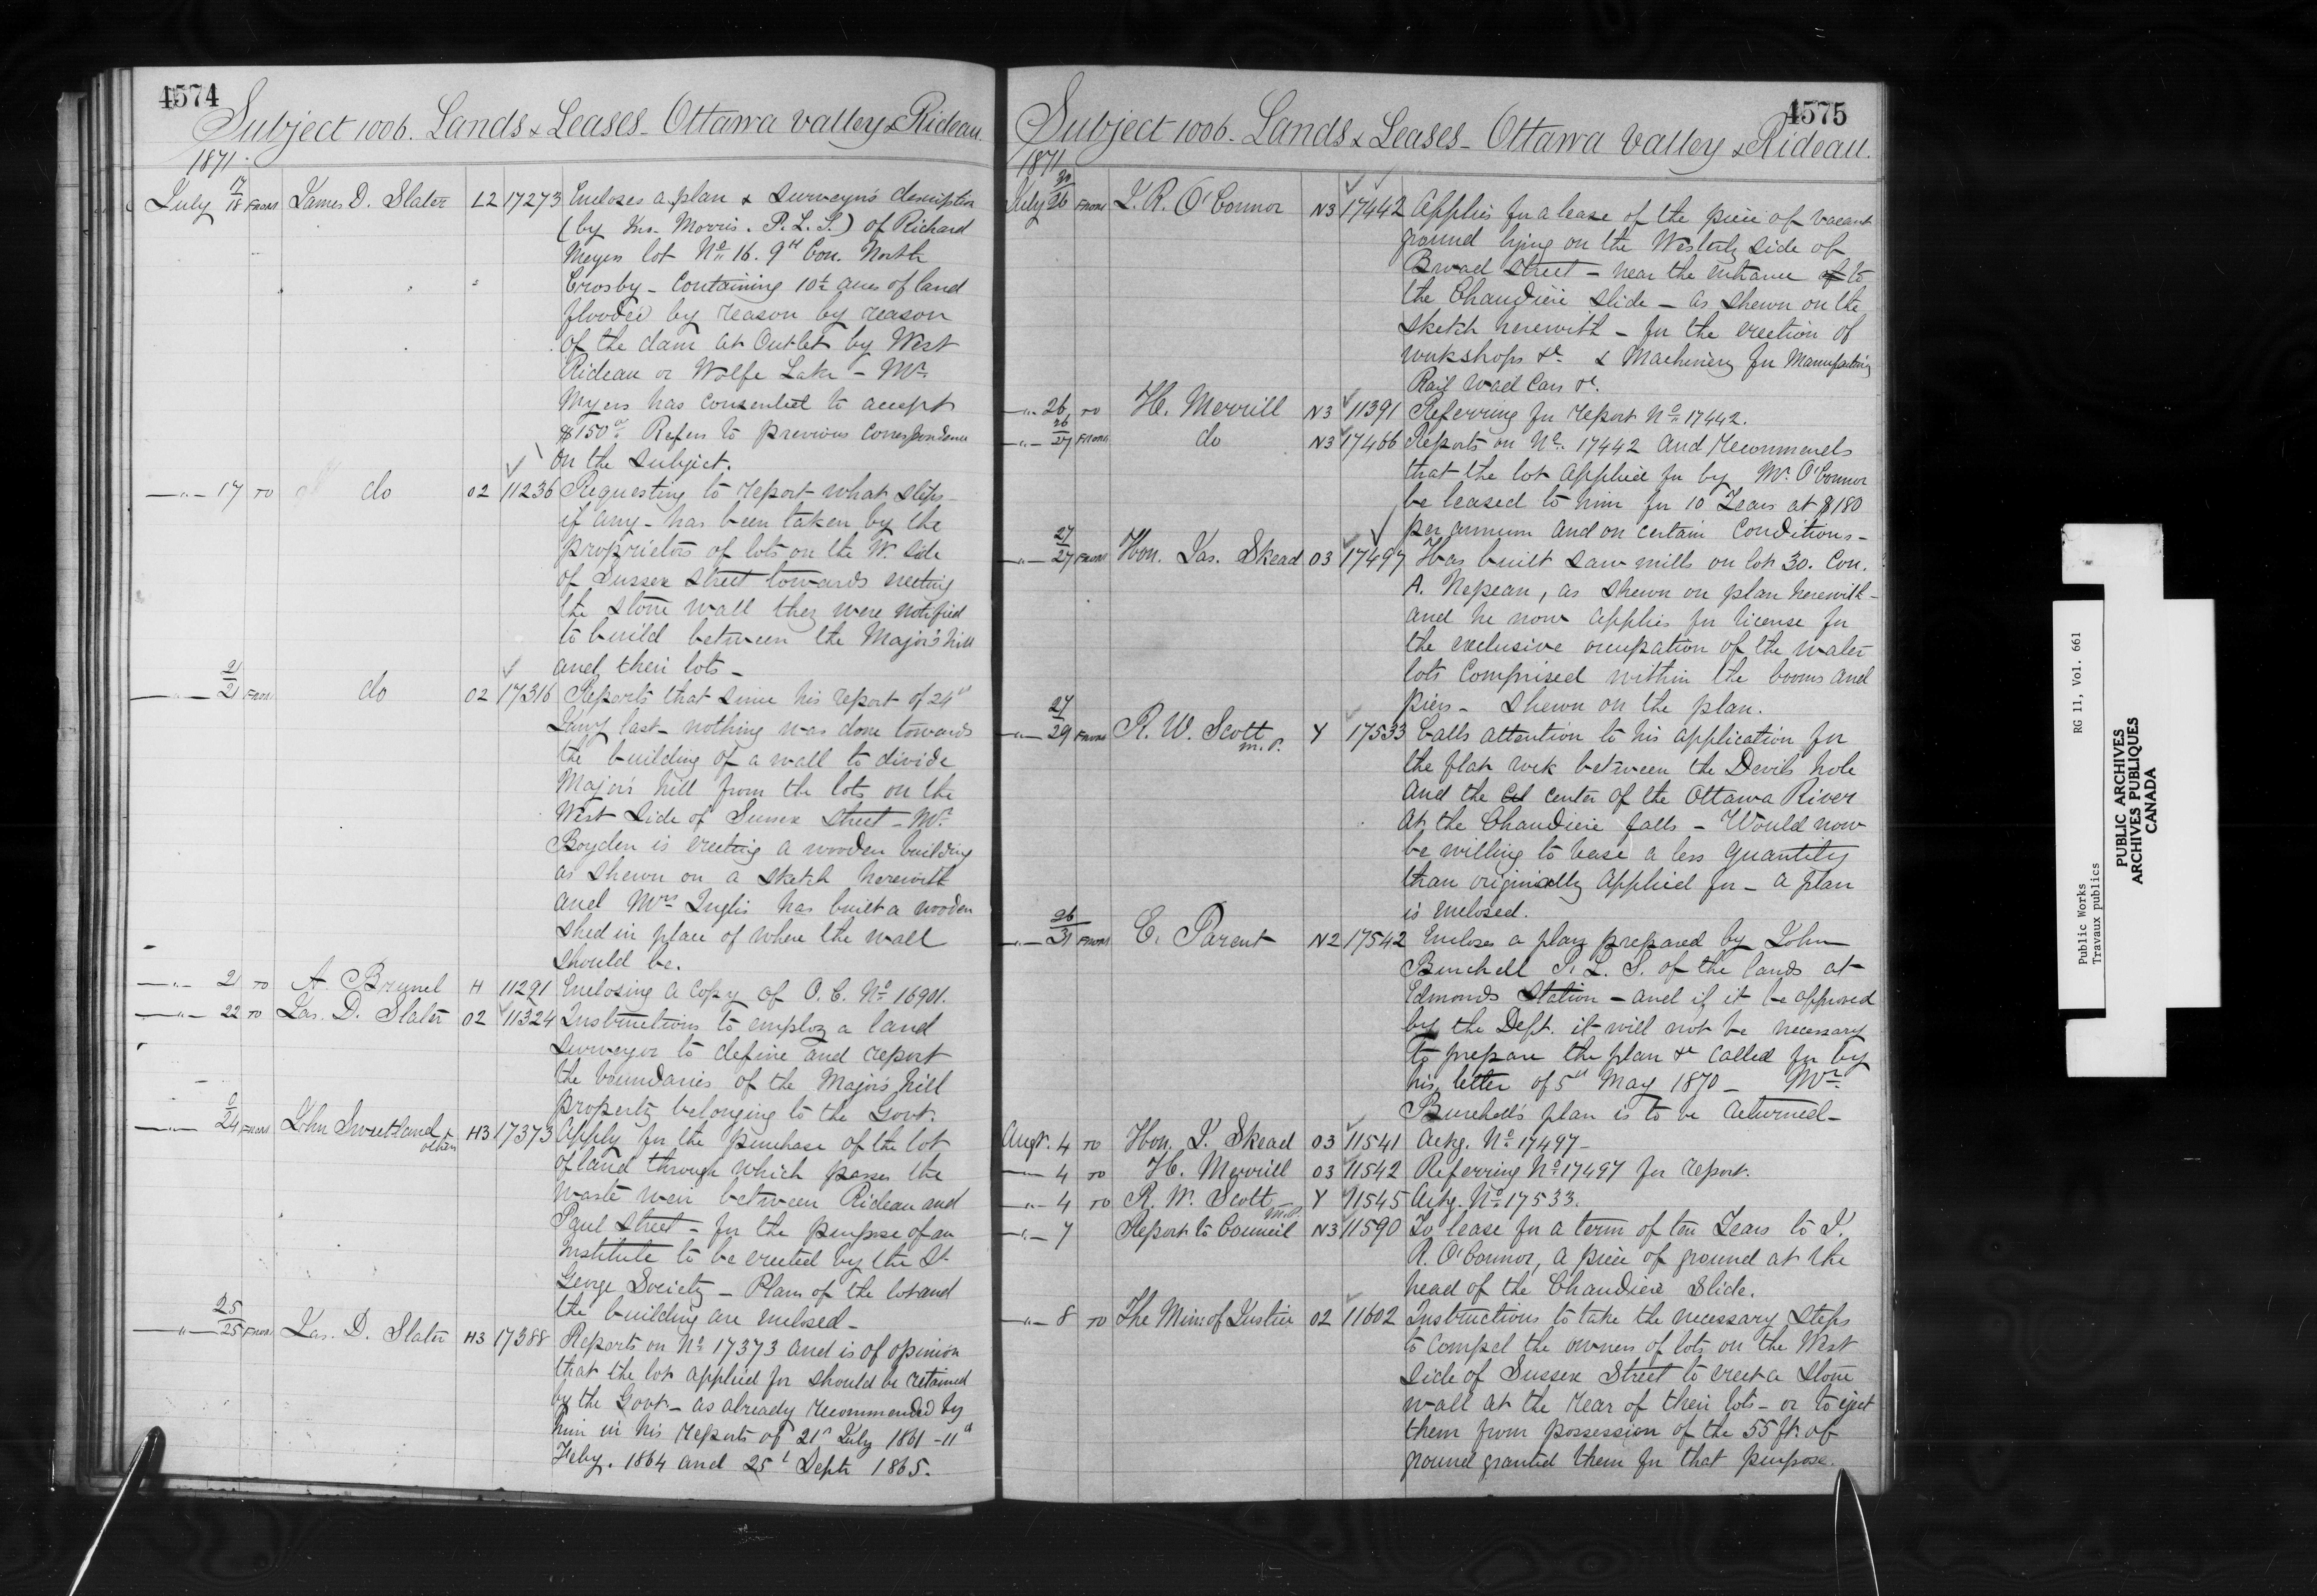 4574
Subject 1006. Lands & Leases - Ottawa Valley & Rideau.
1871.
July 17/18 From James D. Slater L2 17273 Encloses a plan & Surveyor's description
(by Jno. Morris. P.L.S.) of Richard
Meyers lot No. 16. 9th Con. North
Crosby - Containing 10 acres of land
flooded by reason by reason
of the dam at Outlet by West
Rideau or Wolfe Lake - Mr.
Myers has consented to accept
$150 Refers to previous correspondence
on the subject.
-"- 17 TO do O2 11236 Requesting to report what steps -
if any - has been taken by the
proprietors of lots on the W. side
of Sussex Street towards erecting
the stone wall they were notified
to build between the Major's hill
and their lots -
-"- 21/21 From do O2 17316 Reports that since his report of 24th
Jany last - nothing was done towards
the building of a wall to divide
Major's hill from the lots on the
West Side of Sussex Street - Mr.
Boyden is erecting a wooden building
as shewn on a sketch herewith
and Mrs Inglis has built a wooden
shed in place of where the wall
should be.
-"- 21 TO A. Brunel H 11291 Enclosing a Copy of O.C. No. 16901.
-"- 22 TO Jas. D. Slater O2 11324 Instructions to employ a land
surveyor to define and report
the boundaries of the Major's hill
property belonging to the Govt.
-"- 24 From John Sweetland & others H3 17373 Apply for the purchase of the lot
of land through which passes the
waste weir between Rideau and
Paul Street - for the purpose of an
Institute to be erected by the St
George Society - Plans of the lot and
the building are enclosed -
-"- 25/25 From Jas. D. Slater H3 17388 Reports on No. 17373 and is of opinion
that the lot applied for should be retained
by the Govt - as already recommended by
him in his reports of 21st July 1861 - 11th
Feby. 1864 and 25th Septr 1865.
4575
Subject 1006 - Lands & Leases - Ottawa Valley & Rideau.
1871
July 26 From J. R. O'Connor N3 17442 Applies for a lease of the piece of vacant
ground lying on the Westerly side of
Broad Street - near the entrance of to
the Chaudière slide - as shewn on the
sketch herewith - for the erection of
workshops &c & Machinery for Manufacturing
Rail road Cars &c.
-"- 26 TO H. Merrill N3 11391 Referring for report No. 17442.
-"- 26/27 From do N3 17466 Reports on No. 17442 and recommends
that the lot applied for by Mr. O'Connor
be leased to him for 10 Years at $180
per annum and on certain Conditions -
-"- 27/27 From Hon. Jas. Skead O3 17497 Has built saw mills on lot 30. Con.
A. Nepean, as shewn on plan herewith -
and he now applies for license for
the exclusive occupation of the water
lots comprised within the booms and
piers - shewn on the plan.
-"- 27/29 From R. W. Scott M.P. Y 17533 Calls attention to his application for
the flat rock between the Devils hole
and the center of the Ottawa River
at the Chaudiere falls - Would now
be willing to lease a less quantity
than originally applied for - a plan
is enclosed.
-"- 26/31 From E. Parent N2 17542 Encloses a plan prepared by John
Burchell P.L.S. of the lands at
Edmonds Station - and if it be approved
by the Dept. it will not be necessary
to prepare the plan &c called for by
his letter of 5th May 1870 - Mr.
Burchell's plan is to be returned -
Augt. 4 TO Hon. J. Skead O3 11541 Ackg. No. 17497 -
-"- 4 TO H. Merrill O3 11542 Referring No. 17497 for report.
-"- 4 TO R. W. Scott M.P. Y 11545 Ackg. No. 17533.
-"- 7 Report to Council N3 11590 To lease for a term of ten Years to J.
R. O'Connor, a piece of ground at the
head of the Chaudiere Slide.
-"- 8 TO The Min. of Justice O2 11602 Instructions to take the necessary steps
to compel the owners of lots on the West
side of Sussex Street to erect a stone
wall at the rear of their lots - or to eject
them from possession of the 55 ft. of
ground granted them for that purpose.
Public Works RG 11, Vol. 661
Travaux publics
PUBLIC ARCHIVES
ARCHIVES PUBLIQUES
CANADA